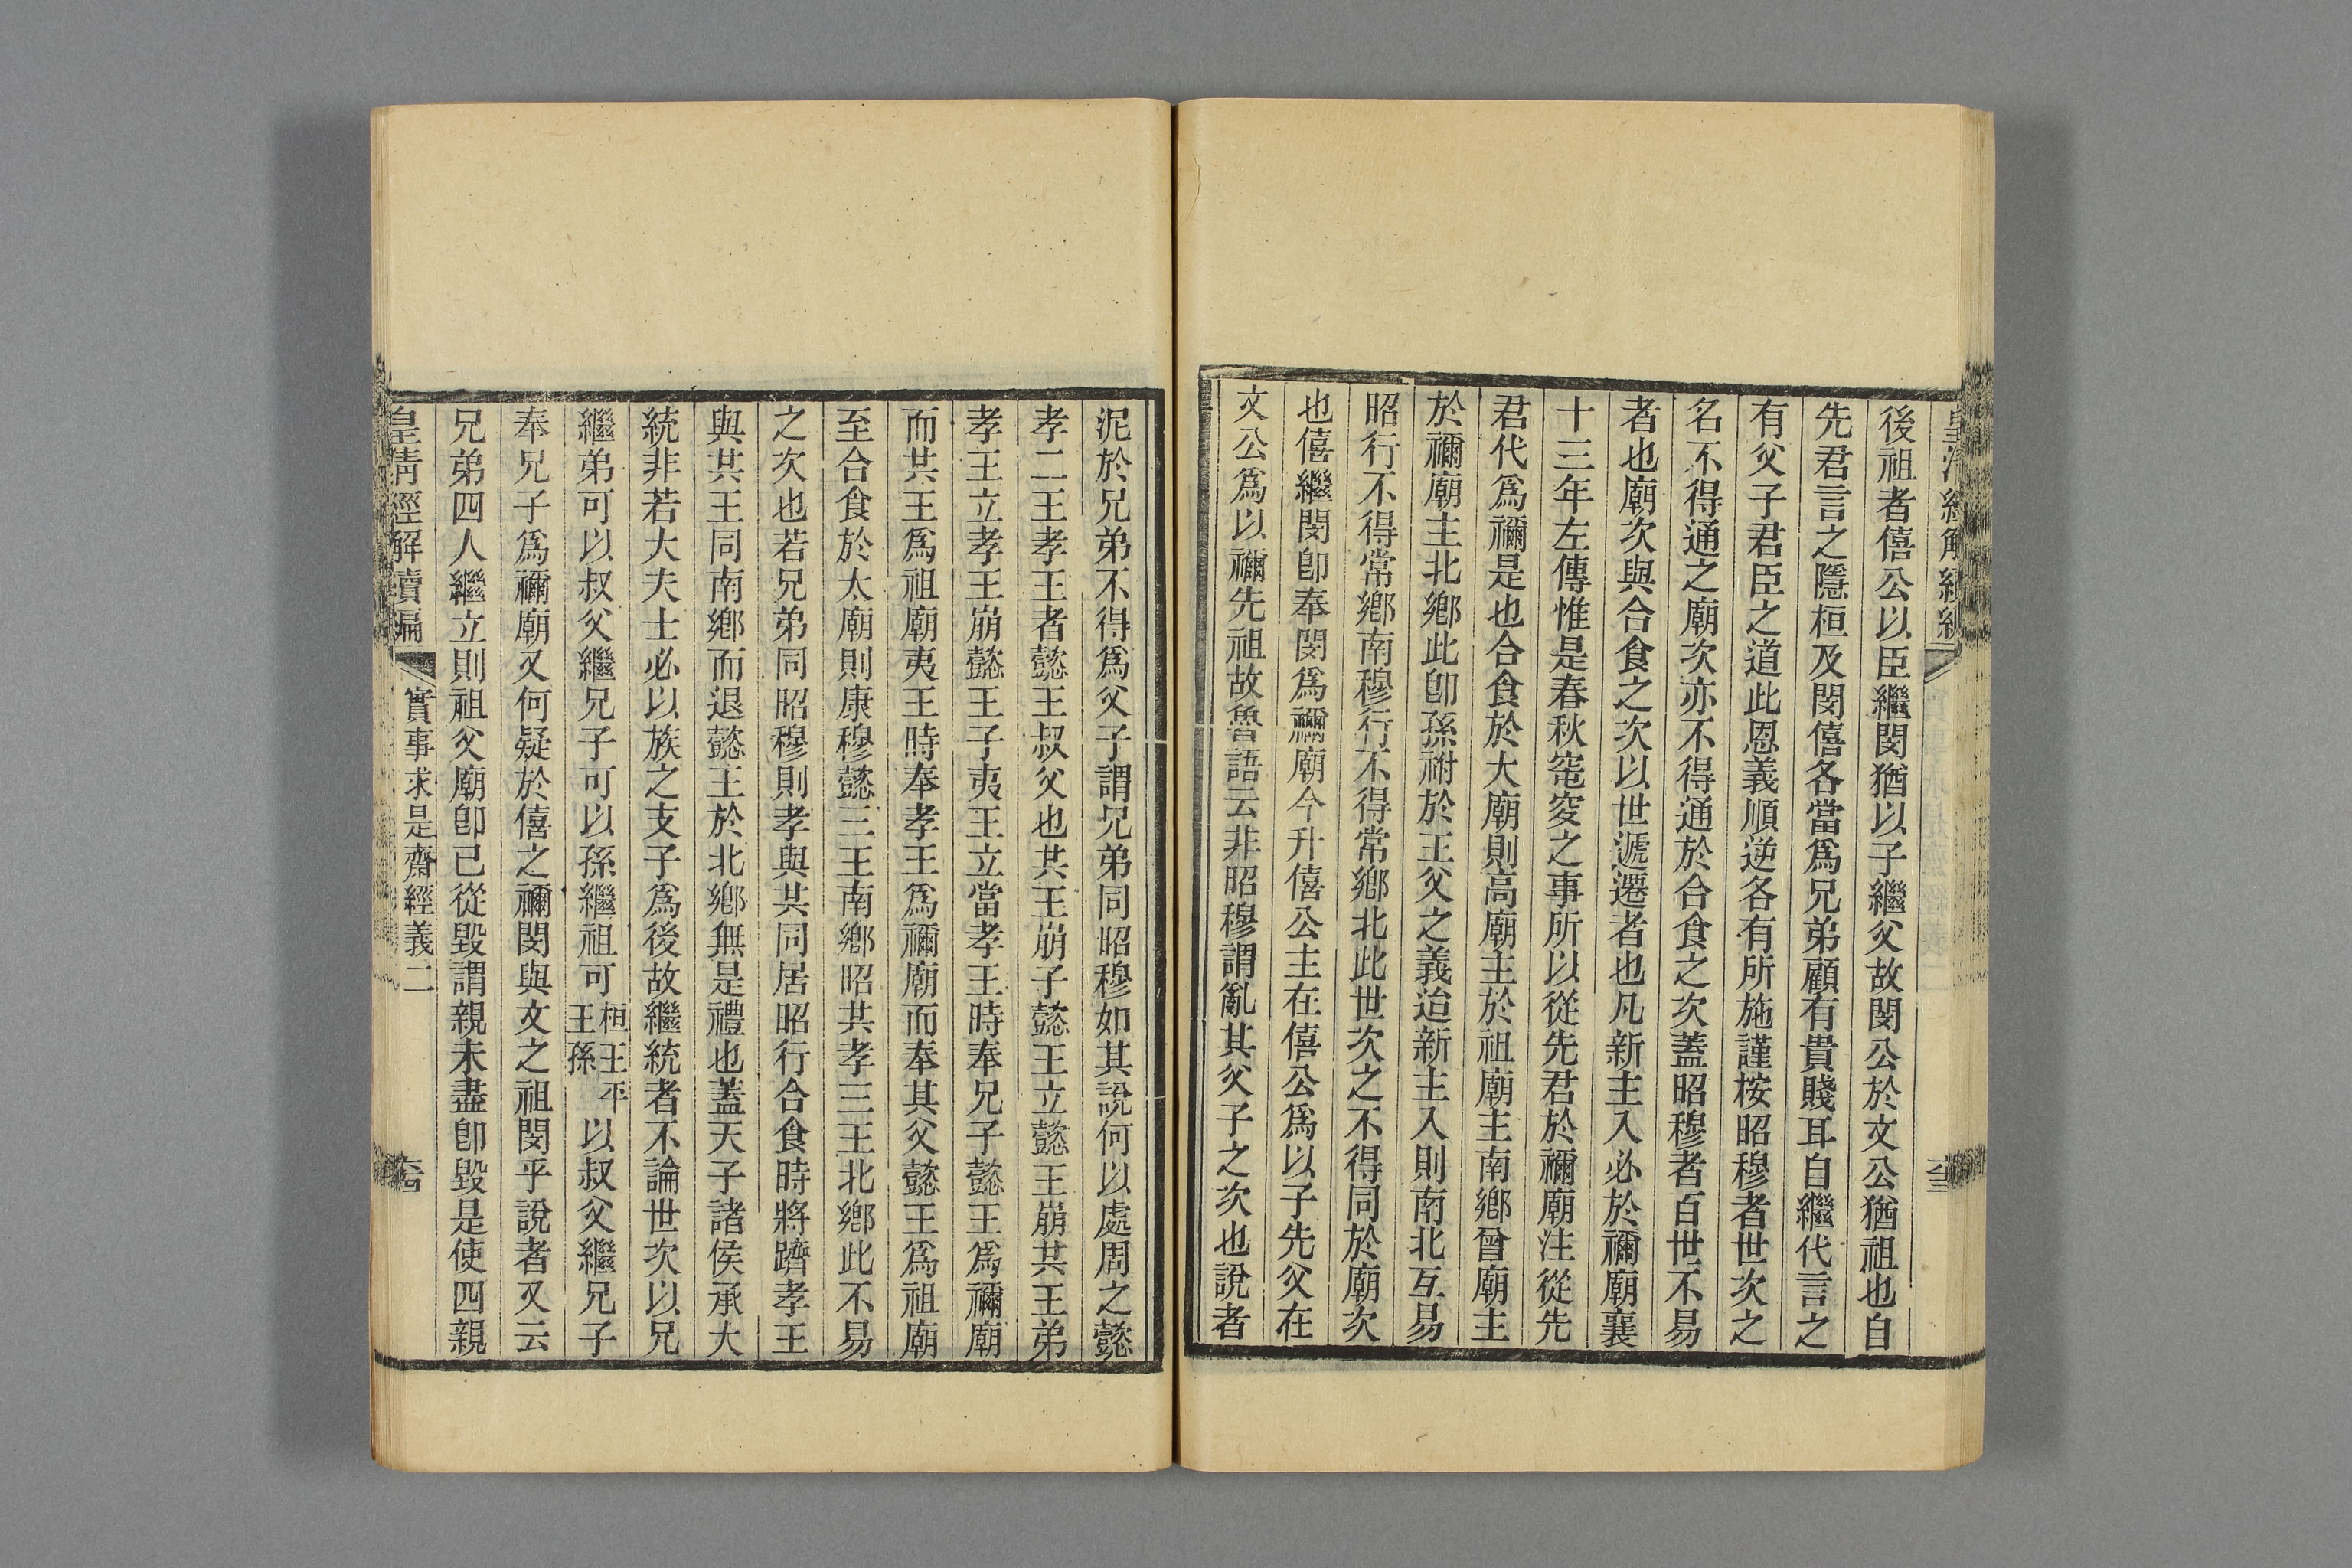 後祖者僖公以臣繼閔猶以子繼父故閔公於文公猶祖也自
先君言之隱桓及閔僖各當爲兄弟顧有貴賤耳自繼代言之
有父子君臣之道此恩義順逆各有所施謹桉昭穆者世次之
名不得通之廟次亦不得通於合食之次蓋昭穆者百世不易
者也廟次與合食之次以世遞遷者也凡新主入必於禰廟襄
十三年左傳惟是春秋窀穸之事所以從先君於禰廟注從先
君代爲禰是也合食於大廟則高廟主於祖廟主南鄉曾廟主
於禰廟主北鄉此卽孫祔於王父之義迨新主入則南北互易
昭行不得常鄉南穆行不得常鄉北此世次之不得同於廟次
也僖繼閔卽奉閔爲禰廟今升僖公主在僖公爲以子先父在
文公爲以禰先祖故魯語云非昭穆謂亂其父子之次也說者
泥於兄弟不得爲父子謂兄弟同昭穆如其說何以處周之懿
孝二王孝王者懿王叔父也共王崩子懿王立懿王崩共王弟
孝王立孝王崩懿王子夷王立當孝王時奉兄子懿王爲禰廟
而共王爲祖廟夷王時奉孝王爲禰廟而奉其父懿王爲祖廟
至合食於太廟則康穆懿三王南鄉昭共孝三王北鄉此不易
之次也若兄弟同昭穆則孝與共同居昭行合食時將躋孝王
與共王同南鄉而退懿王於北鄉無是禮也蓋天子諸侯承大
統非若大夫士必以族之支子爲後故繼統者不論世次以兄
繼弟可以叔父繼兄子可以孫繼祖可桓王平王孫以叔父繼兄子
奉兄子爲禰廟又何疑於僖之禰閔與文之祖閔乎說者又云
兄弟四人繼立則祖父廟卽已從毀謂親未盡卽毀是使四親
皇淸經解續編
實事求是齋經義二